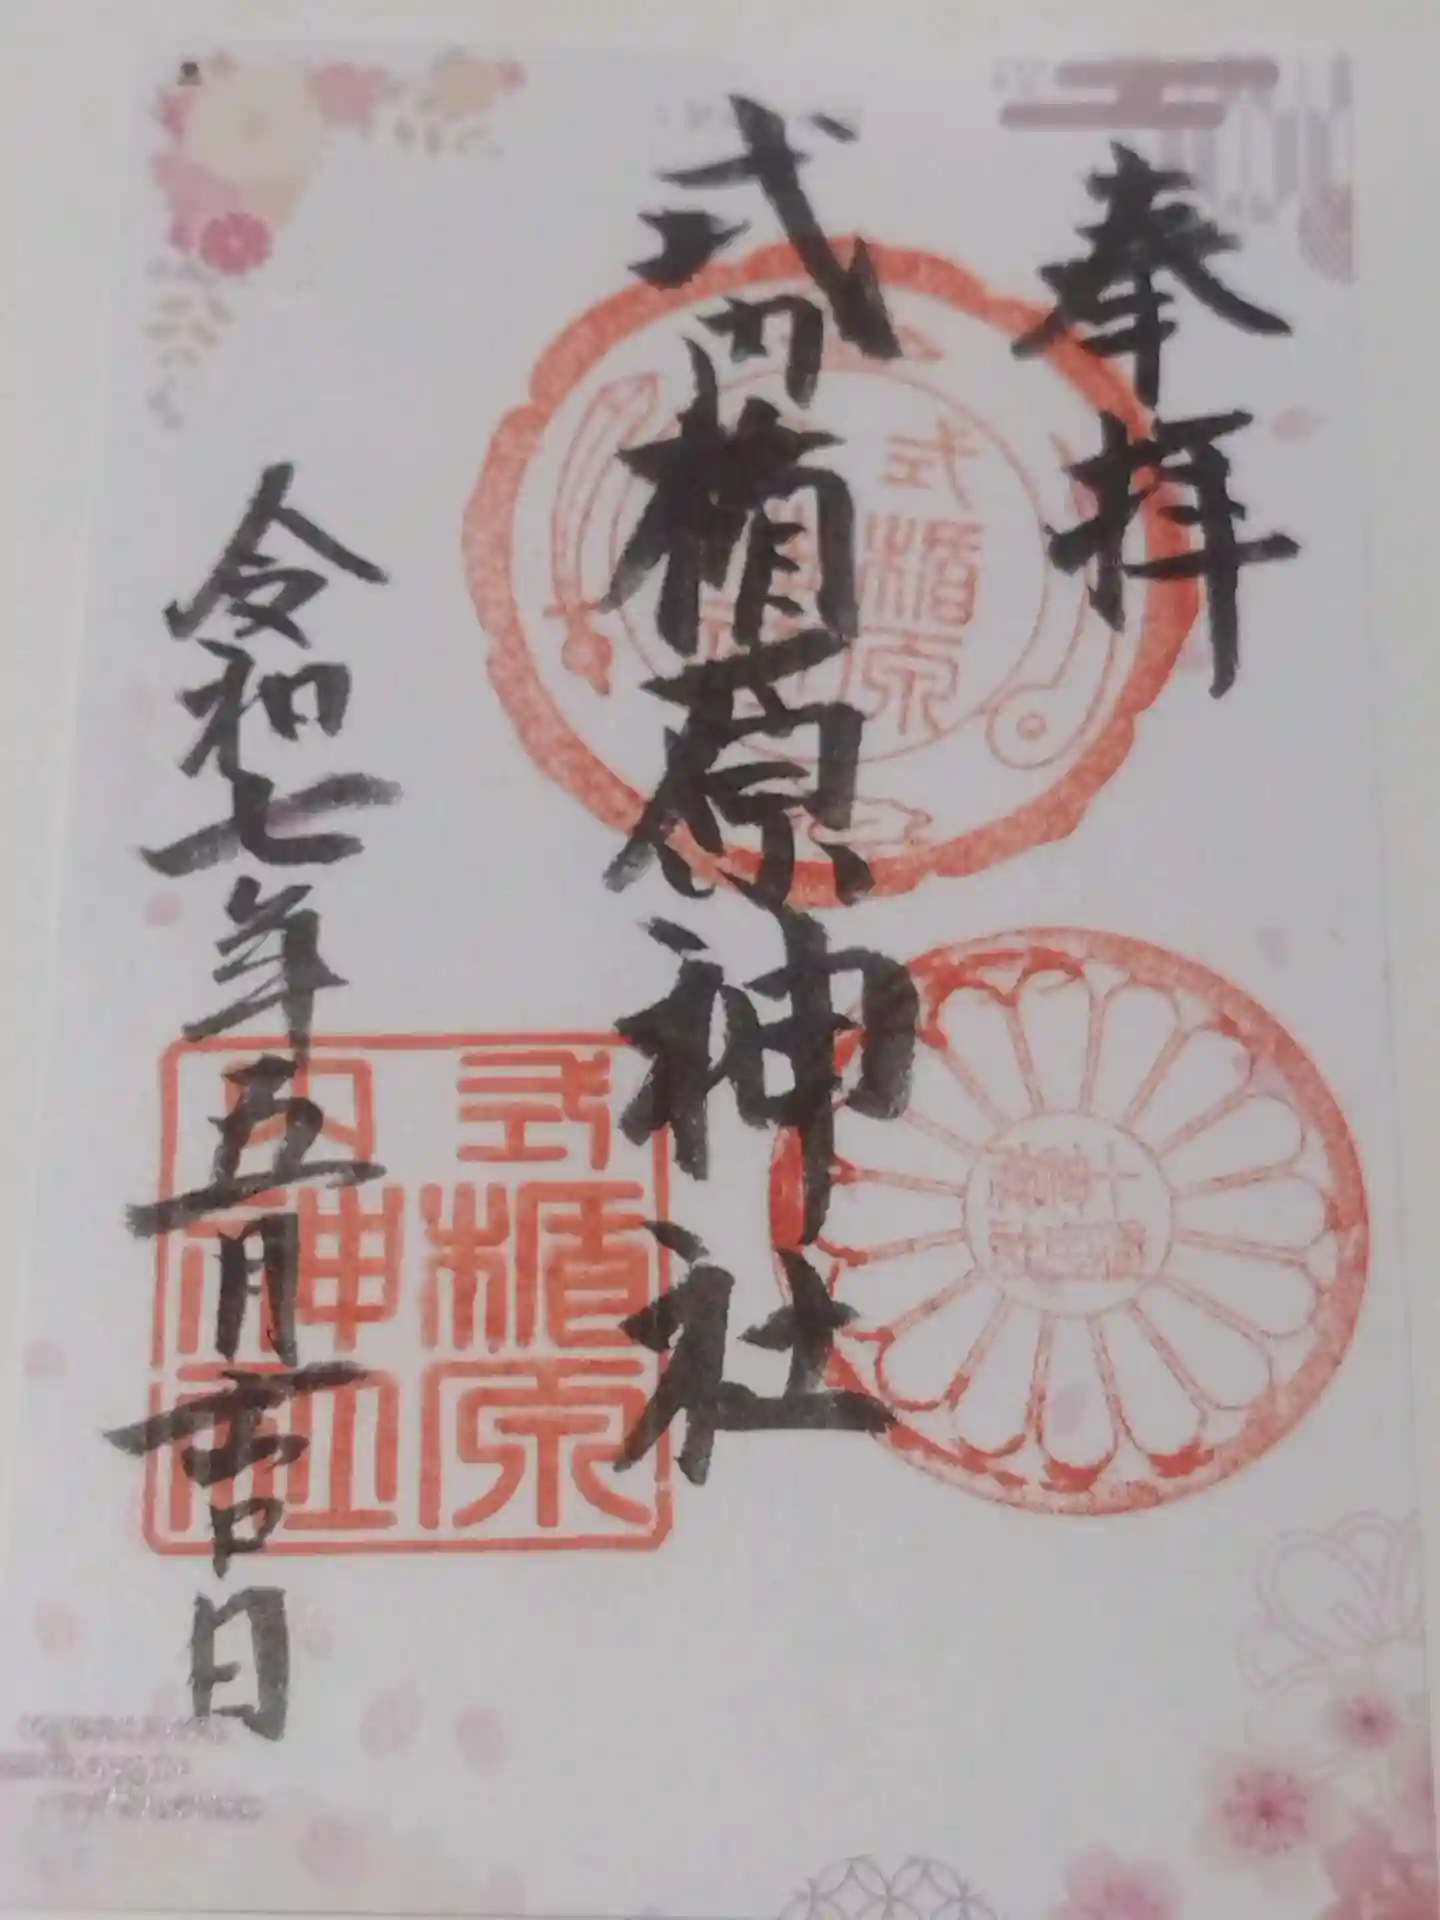 奉拝
式内楯原神社
令和七年五月吉日
式楯原
式楯原
内神社